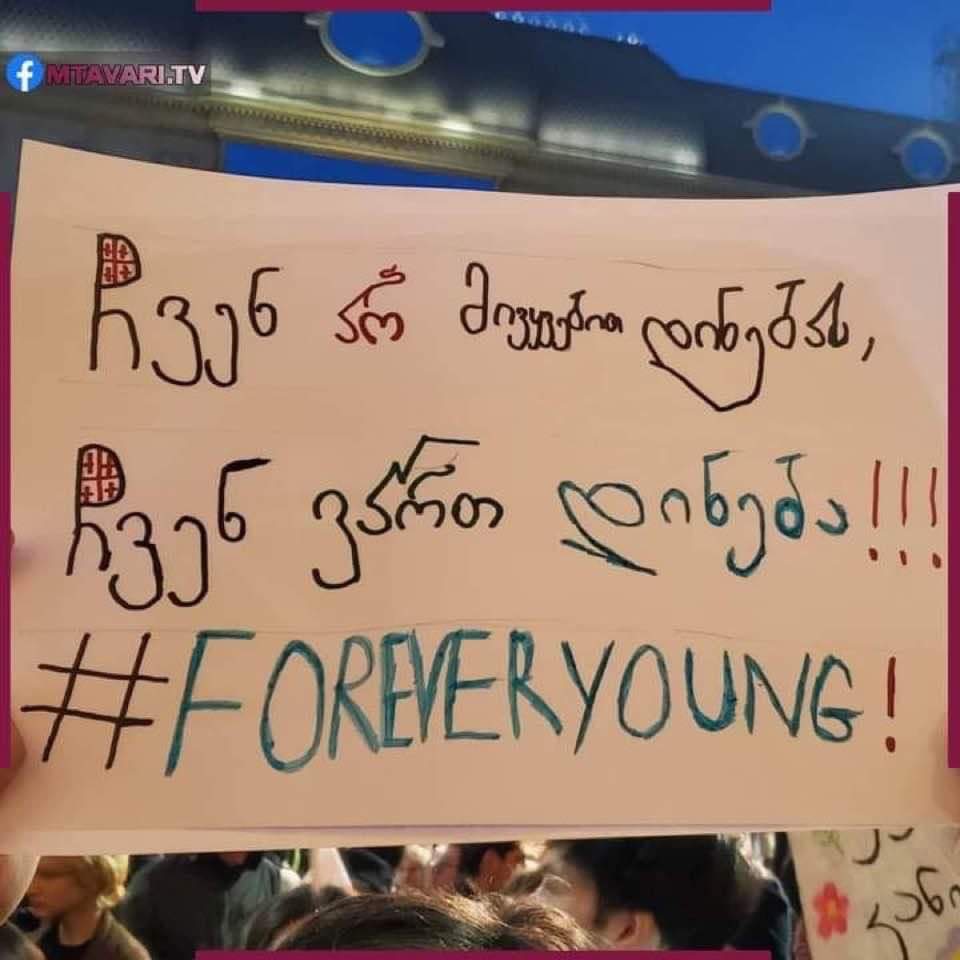 MTAVARI.TV
ჩვენ არ მივყვებით დინებას,
ჩვენ ვართ დინება!!!
#FOREVERYOUNG!